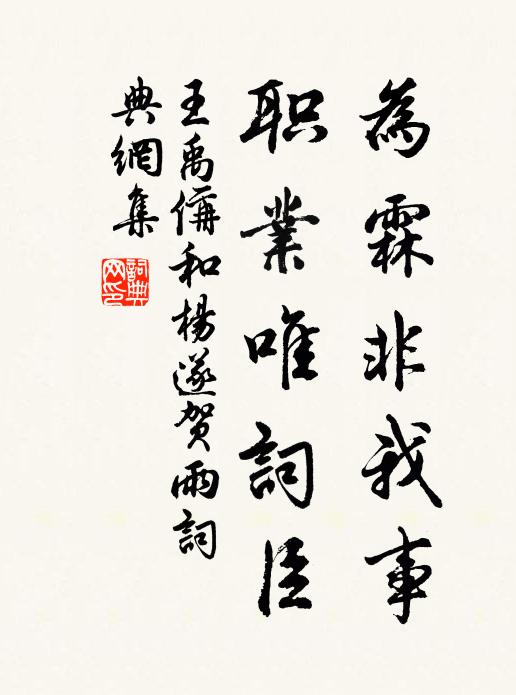 為霖非我事
职業唯詞臣
王禹偁和楊遂贺雨詞
典網集
詞典
网印